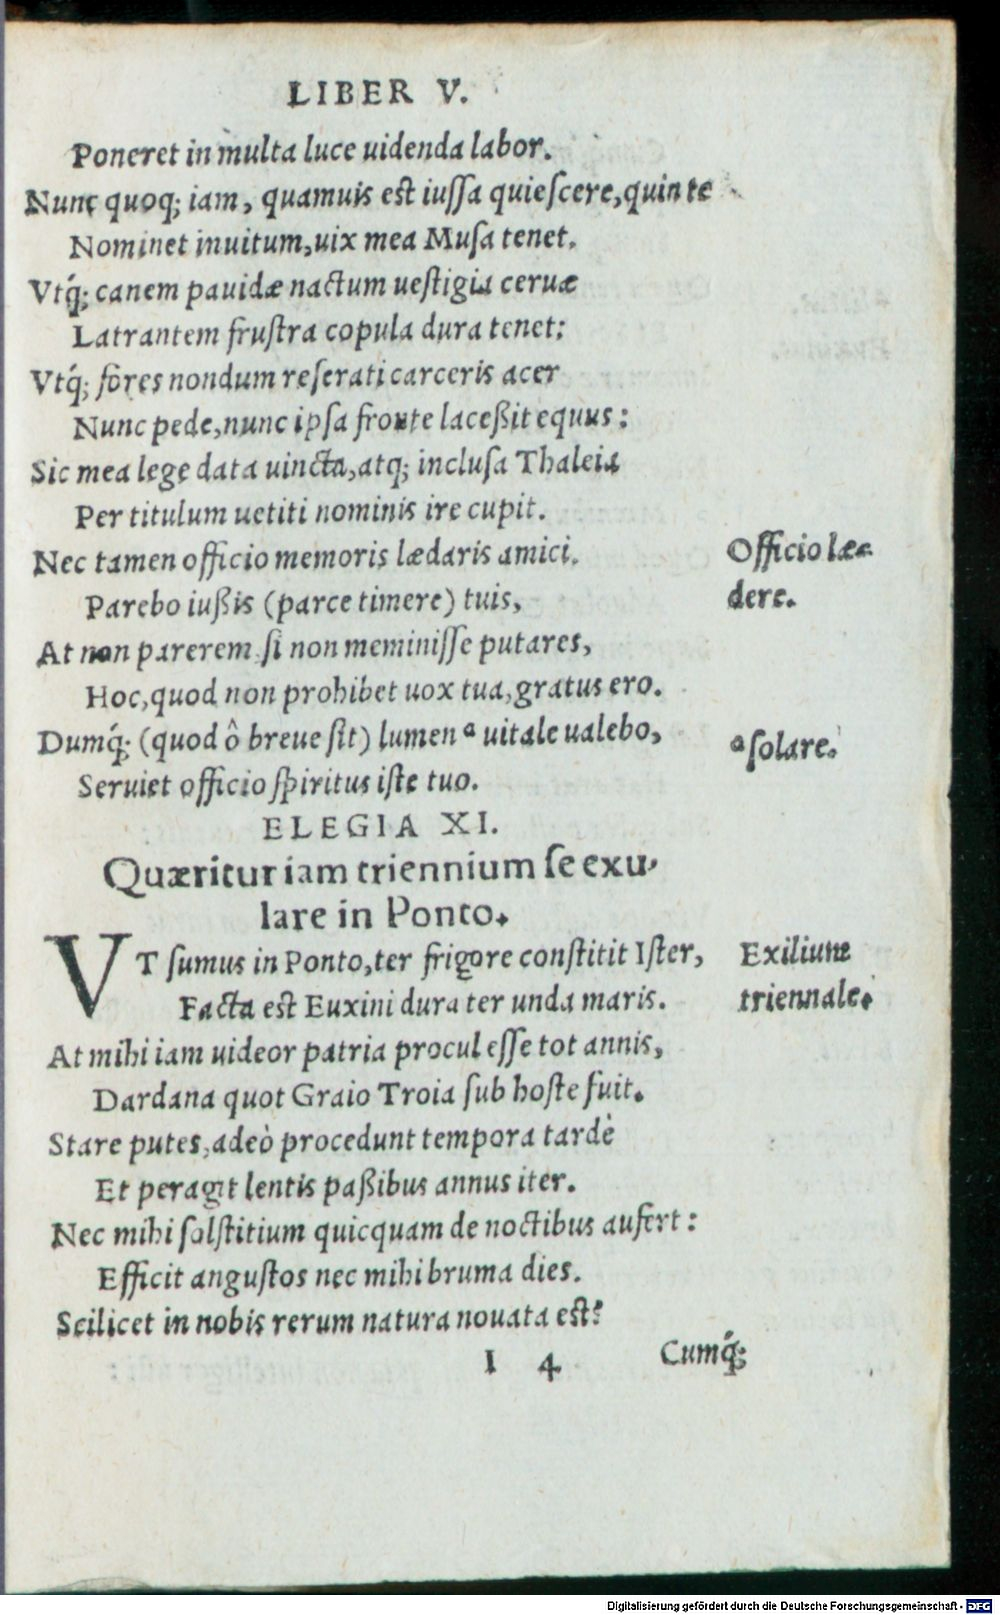 LIBER V.
Poneret in multa luce uidenda labor.
Nunc quoq; iam, quamuis est iussa quiescere, quin te
Nominet inuitum, uix mea Musa tenet.
Vtq́; canem pauidæ nactum uestigia ceruæ
Latrantem frustra copula dura tenet:
Vtq́; fores nondum reserati carceris acer
Nunc pede, nunc ipsa fronte laceßit equus:
Sic mea lege data uincta, atq; inclusa Thaleia
Per titulum uetiti nominis ire cupit.
Nec tamen officio memoris lædaris amici. Officio læ-
Parebo iußis (parce timere) tuis, dere.
At non parerem si non meminisse putares,
Hoc, quod non prohibet uox tua, gratus ero.
Dumq́; (quod ô breue sit) lumen ᵃ uitale ualebo, ᵃ solare.
Seruiet officio spiritus iste tuo.
ELEGIA XI.
Quæritur iam triennium se exu-
lare in Ponto.
VT sumus in Ponto, ter frigore constitit Ister, Exilium
Facta est Euxini dura ter unda maris. triennale.
At mihi iam uideor patria procul esse tot annis,
Dardana quot Graio Troia sub hoste fuit.
Stare putes, adeò procedunt tempora tardè
Et peragit lentis paßibus annus iter.
Nec mihi solstitium quicquam de noctibus aufert:
Efficit angustos nec mihi bruma dies.
Scilicet in nobis rerum natura nouata est?
I 4 Cumq́;
Digitalisierung gefördert durch die Deutsche Forschungsgemeinschaft - DFG